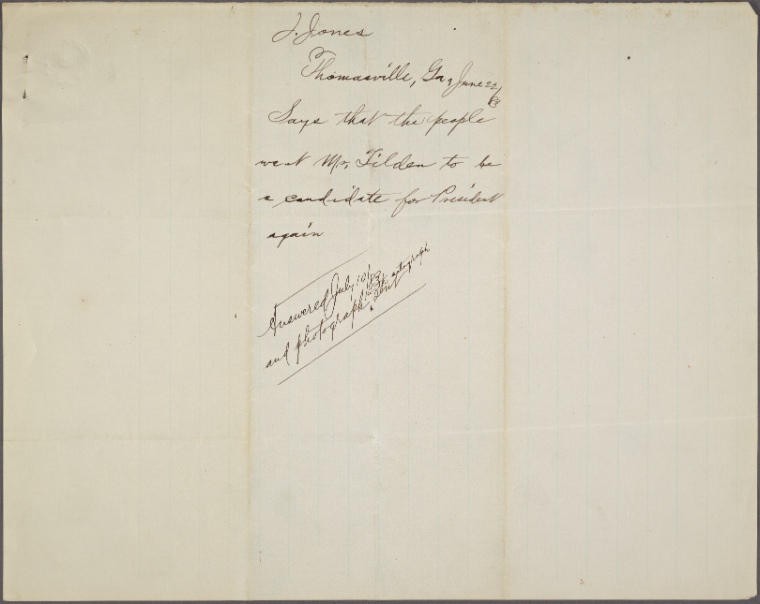 J. Jones
Thomasville, Ga, June 22/83
Says that the people
want Mr. Tilden to be
a candidate for President
again
Answered July 10/83
and photograph with autograph sent